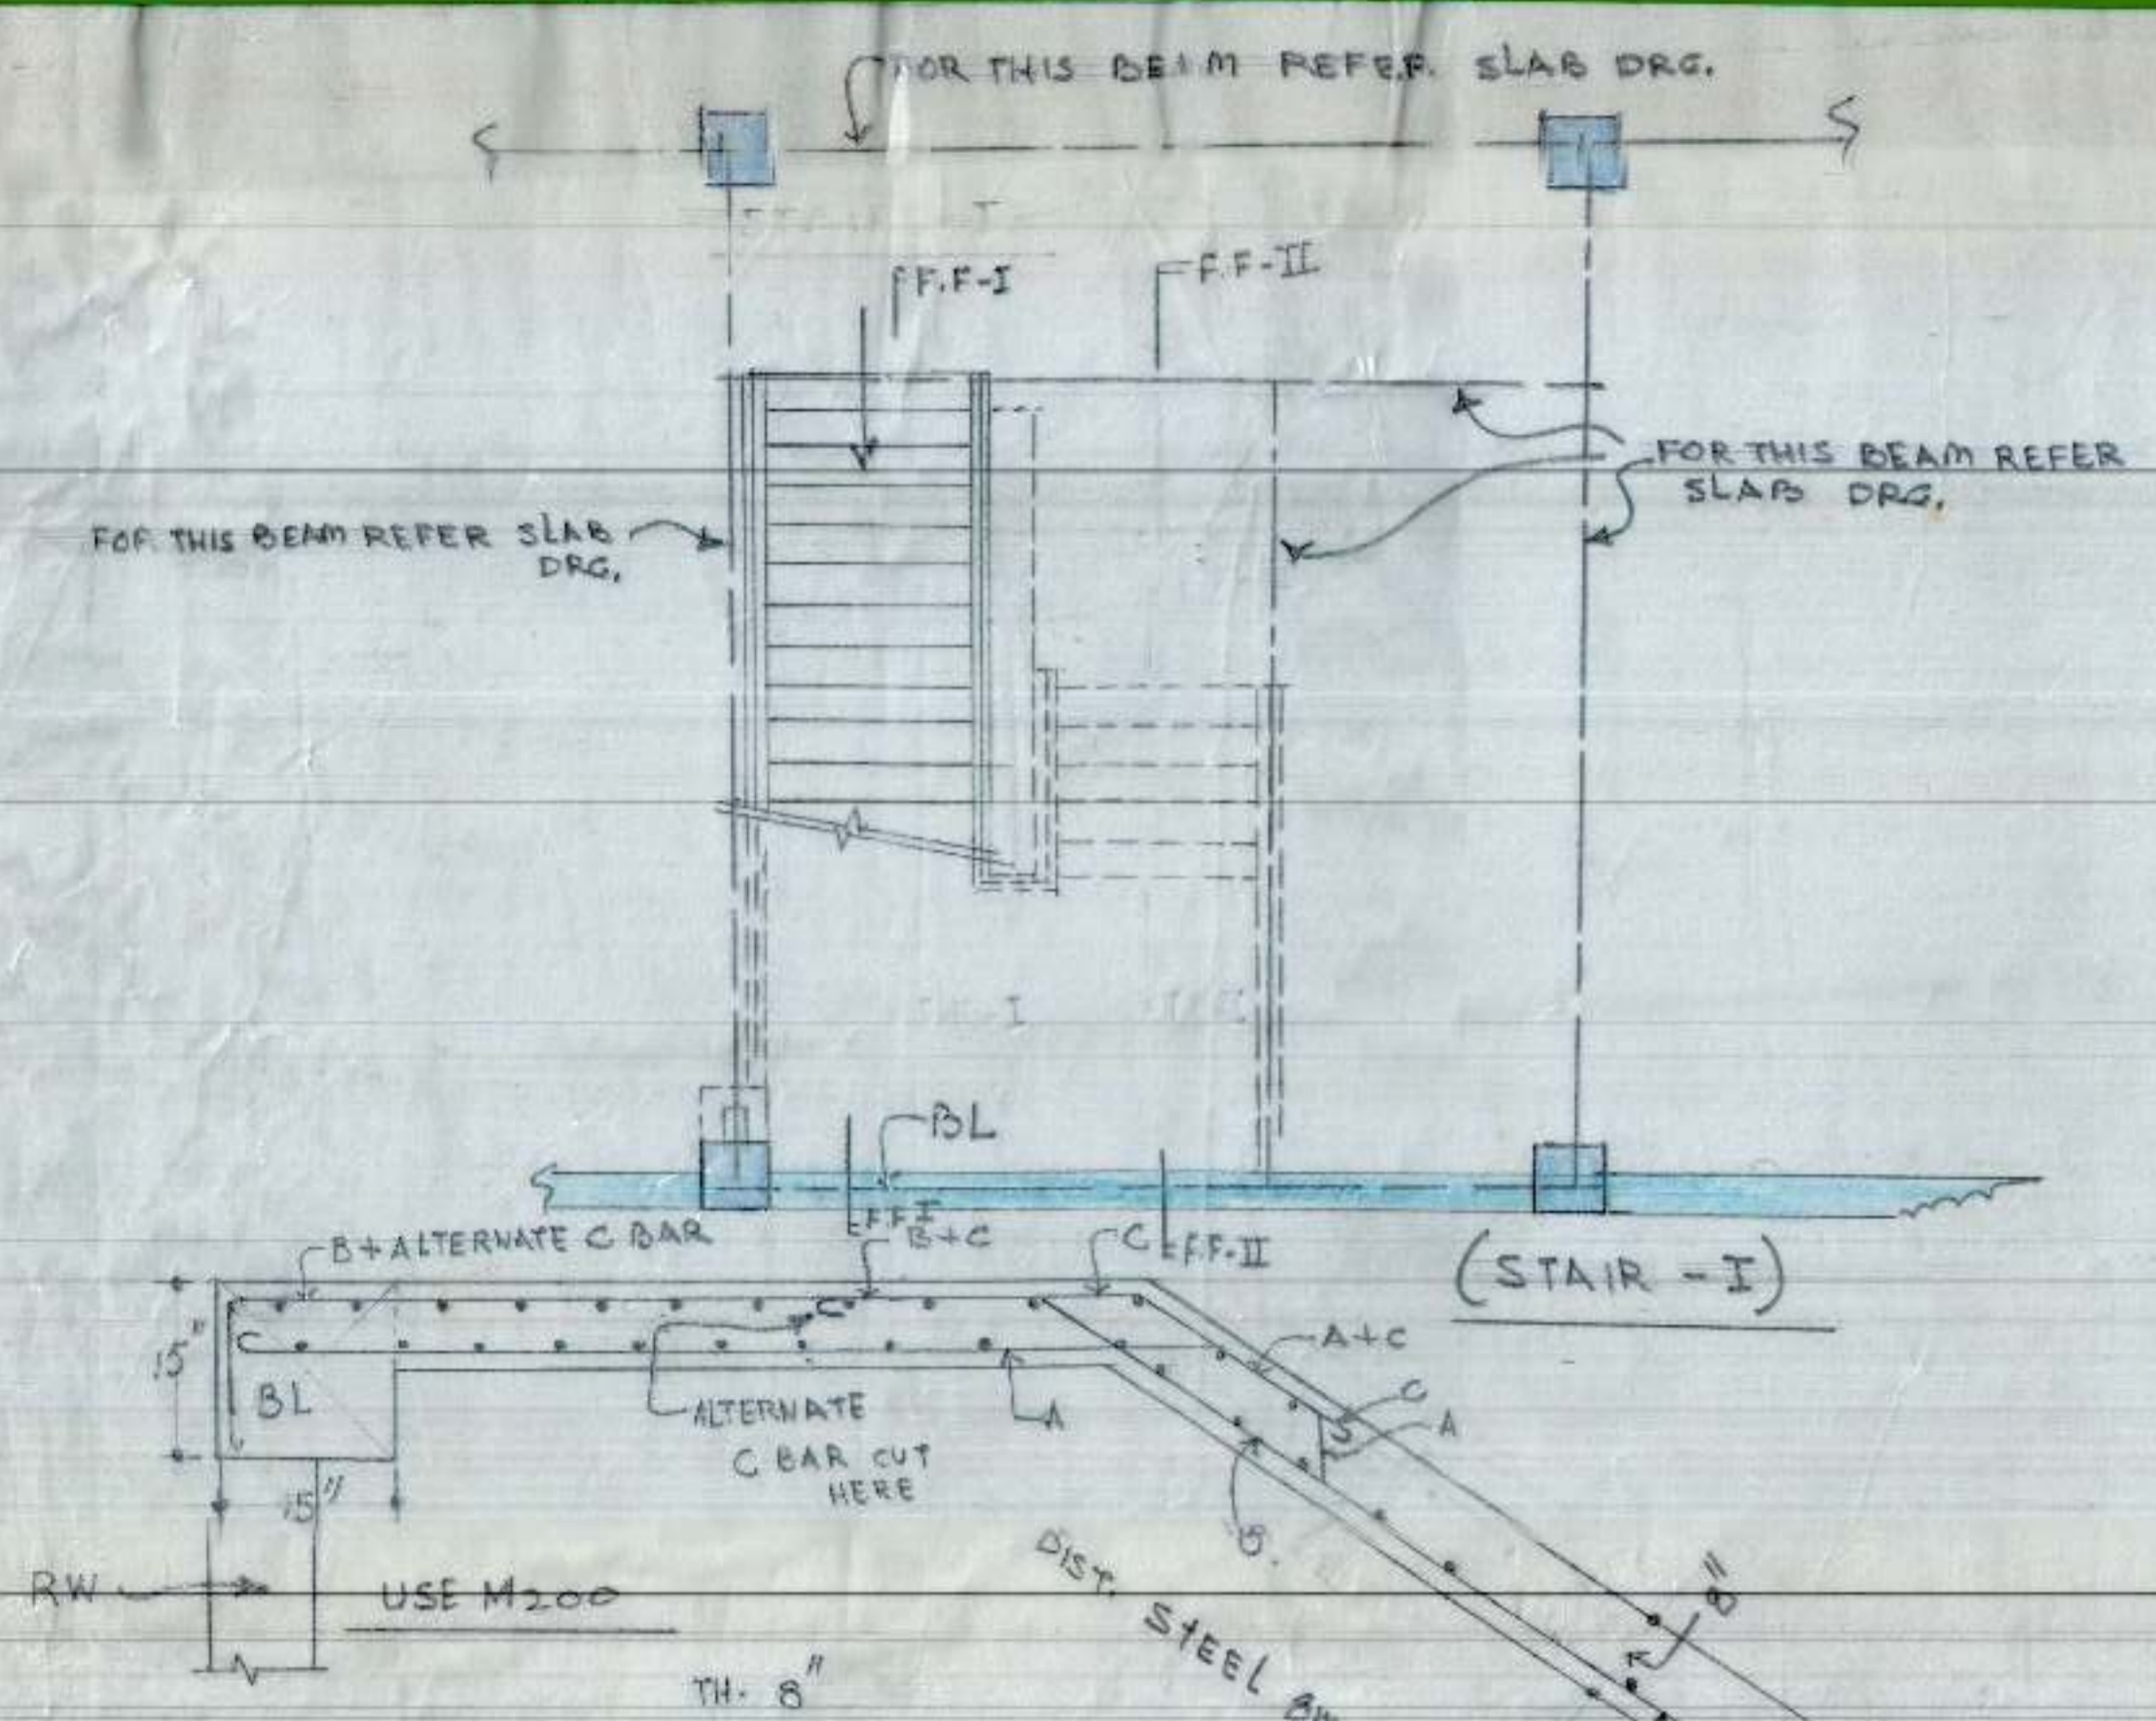 FOR THIS BEAM REFER. SLAB DRG.
F.F-I
F.F-II
FOR THIS BEAM REFER
SLAB DRG.
FOR THIS BEAM REFER SLAB
DRG.
BL
F.F I
F.F-II
(STAIR - I)
B + ALTERNATE C BAR
B+C
C
A+C
C
A
15"
BL
ALTERNATE
C BAR CUT
HERE
A
15"
B.
RW
USE M200
DIST. STEEL 8m
8"
TH. 8"